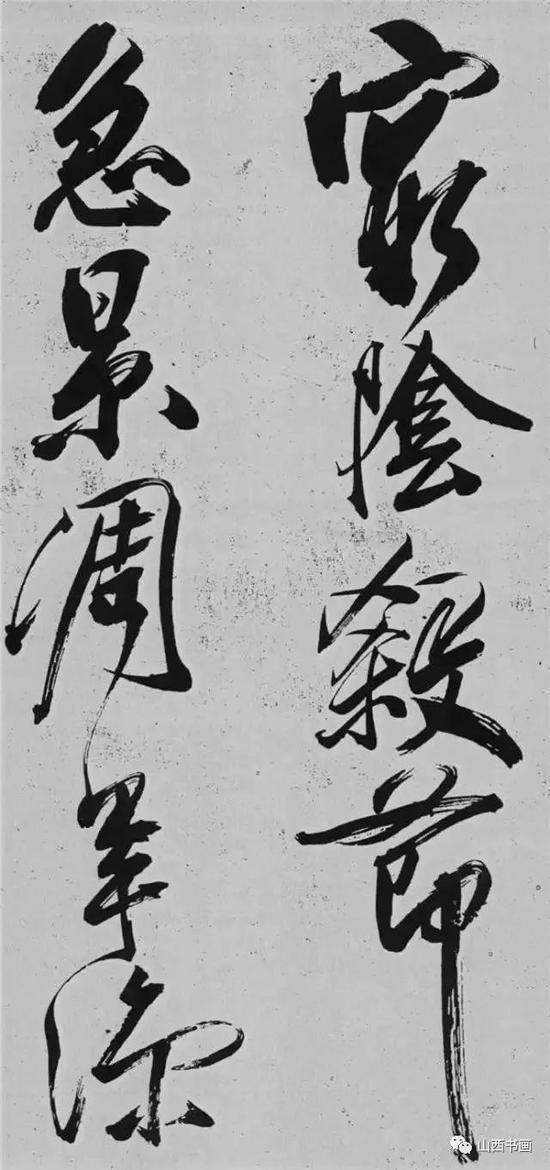 窮陰殺節
急景凋年涼
山西书画